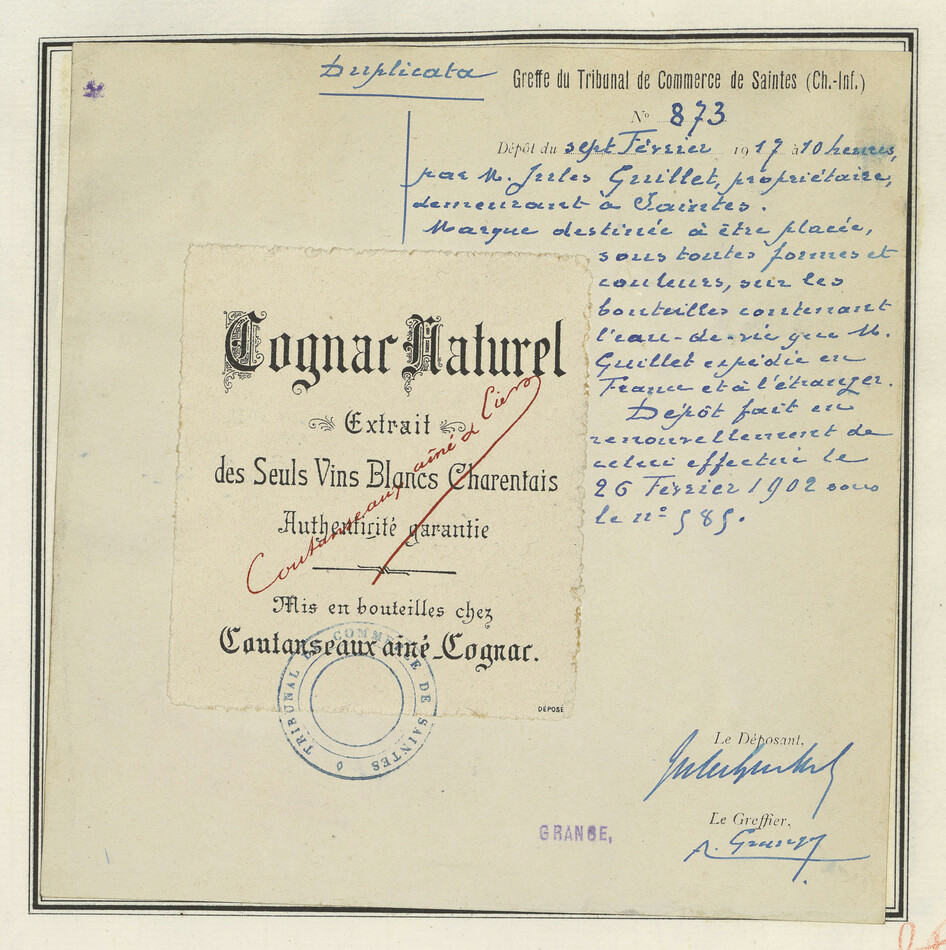 Duplicata
Greffe du Tribunal de Commerce de Saintes (Ch.-Inf.)
N° 873
Dépôt du sept Février 1917 à 10 heures,
par M. Jules Guillet, propriétaire,
demeurant à Saintes.
Marque destinée à être placée,
sous toutes formes et
couleurs, sur les
bouteilles contenant
l'eau-de-vie que M.
Guillet expédie en
France et à l'étranger.
Dépôt fait en
renouvellement de
celui effectué le
26 Février 1902 sous
le n° 585.
Cognac Naturel
Extrait
des Seuls Vins Blancs Charentais
Authenticité garantie
Coutanseaux aîné &
Mis en bouteilles chez
Coutanseaux ainé_Cognac.
DÉPOSÉ
TRIBUNAL DE COMMERCE DE SAINTES
Le Déposant,
Jules Guillet
Le Greffier,
GRANGE,
A. Grange